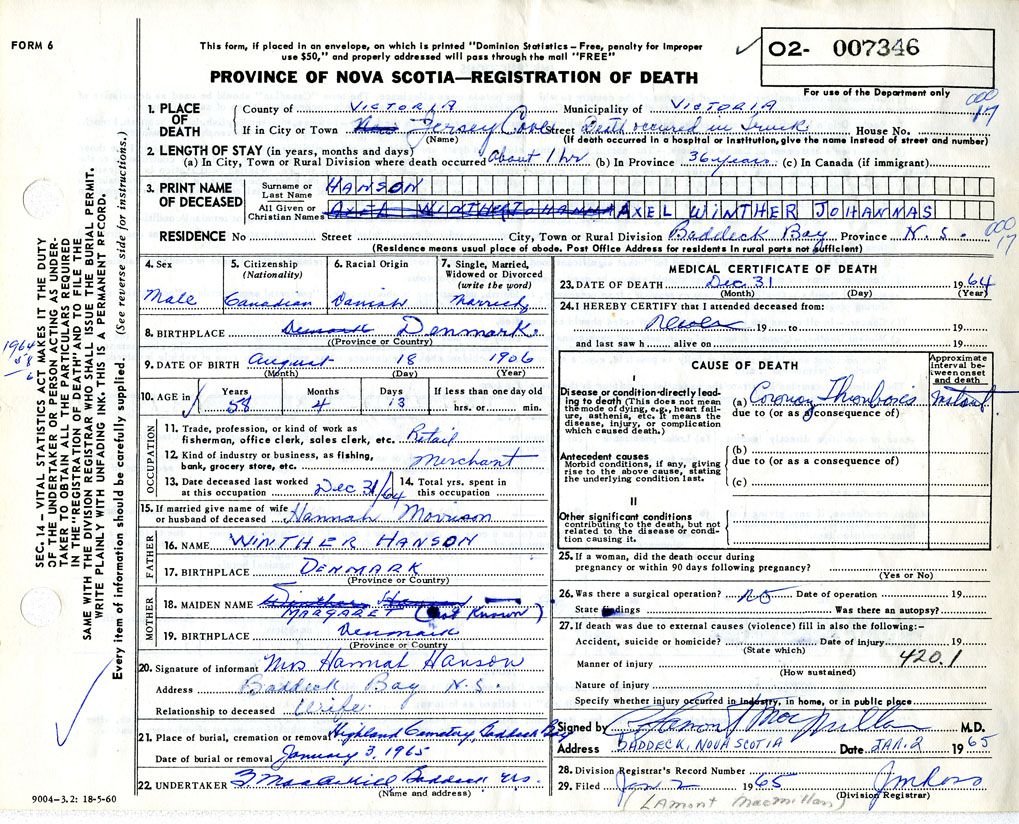 FORM 6
This form, if placed in an envelope, on which is printed "Dominion Statistics - Free, penalty for improper
use $50," and properly addressed will pass through the mail "FREE"
✓ O2- 007346
PROVINCE OF NOVA SCOTIA—REGISTRATION OF DEATH
For use of the Department only
1. PLACE OF DEATH
County of VICTORIA Municipality of VICTORIA
000 17
If in City or Town Jersey Cove Street Death occured in Truck House No.
(Name) (If death occurred in a hospital or institution, give the name instead of street and number)
2. LENGTH OF STAY (in years, months and days)
(a) In City, Town or Rural Division where death occurred About 1 hr. (b) In Province 36 years (c) In Canada (if immigrant)
3. PRINT NAME OF DECEASED
Surname or Last Name HANSON
All Given or Christian Names AXEL WINTHER JOHANNAS
RESIDENCE No Street City, Town or Rural Division Baddeck Bay Province N.S.
000 17
(Residence means usual place of abode. Post Office Address for residents in rural parts not sufficient)
4. Sex Male
5. Citizenship (Nationality) Canadian
6. Racial Origin Danish
7. Single, Married, Widowed or Divorced (write the word) Married
8. BIRTHPLACE Denmark Denmark.
(Province or Country)
9. DATE OF BIRTH August 18 1906
(Month) (Day) (Year)
10. AGE in Years 58 Months 4 Days 13 If less than one day old hrs. or min.
OCCUPATION
11. Trade, profession, or kind of work as fisherman, office clerk, sales clerk, etc. Retail
12. Kind of industry or business, as fishing, bank, grocery store, etc. Merchant
13. Date deceased last worked at this occupation Dec 31/64
14. Total yrs. spent in this occupation
15. If married give name of wife or husband of deceased Hannah Morrison
FATHER
16. NAME WINTHER HANSON
17. BIRTHPLACE DENMARK
(Province or Country)
MOTHER
18. MAIDEN NAME MARGARET (Not Known)
19. BIRTHPLACE Denmark
(Province or Country)
20. Signature of informant Mrs Hannah Hanson
Address Baddeck Bay N.S.
Relationship to deceased Wife.
21. Place of burial, cremation or removal Highland Cemetry, Baddeck Bay
Date of burial or removal January 3, 1965
22. UNDERTAKER Baddeck N.S.
(Name and address)
9004-3.2: 18-5-60
MEDICAL CERTIFICATE OF DEATH
23. DATE OF DEATH Dec 31 1964
(Month) (Day) (Year)
24. I HEREBY CERTIFY that I attended deceased from:
19 to 19
and last saw h alive on 19
CAUSE OF DEATH
Approximate interval between onset and death
I
Disease or condition directly leading to death (This does not mean the mode of dying, e.g., heart failure, asthenia, etc. It means the disease, injury, or complication which caused death.)
(a) Coronary Thrombosis Instant.
due to (or as a consequence of)
Antecedent causes
Morbid conditions, if any, giving rise to the above cause, stating the underlying condition last.
(b)
due to (or as a consequence of)
(c)
II
Other significant conditions contributing to the death, but not related to the disease or condition causing it.
25. If a woman, did the death occur during
pregnancy or within 90 days following pregnancy?
(Yes or No)
26. Was there a surgical operation? NO Date of operation 19
State findings Was there an autopsy?
27. If death was due to external causes (violence) fill in also the following:-
Accident, suicide or homicide? Date of injury 19
(State which)
420.1
Manner of injury
(How sustained)
Nature of injury
Specify whether injury occurred in industry, in home, or in public place
Signed by Lamont MacMillan M.D.
Address BADDECK, NOVA SCOTIA Date JAN. 2 1965
28. Division Registrar's Record Number
29. Filed Jan 2 1965 JM Ross
(Division Registrar)
(LAMONT MacMillan)
SEC. 14 - VITAL STATISTICS ACT MAKES IT THE DUTY
OF THE UNDERTAKER OR PERSON ACTING AS UNDER-
TAKER TO OBTAIN ALL THE PARTICULARS REQUIRED
IN THE "REGISTRATION OF DEATH" AND TO FILE THE
SAME WITH THE DIVISION REGISTRAR WHO SHALL ISSUE THE BURIAL PERMIT.
WRITE PLAINLY WITH UNFADING INK. THIS IS A PERMANENT RECORD.
Every item of information should be carefully supplied. (See reverse side for instructions.)
1964